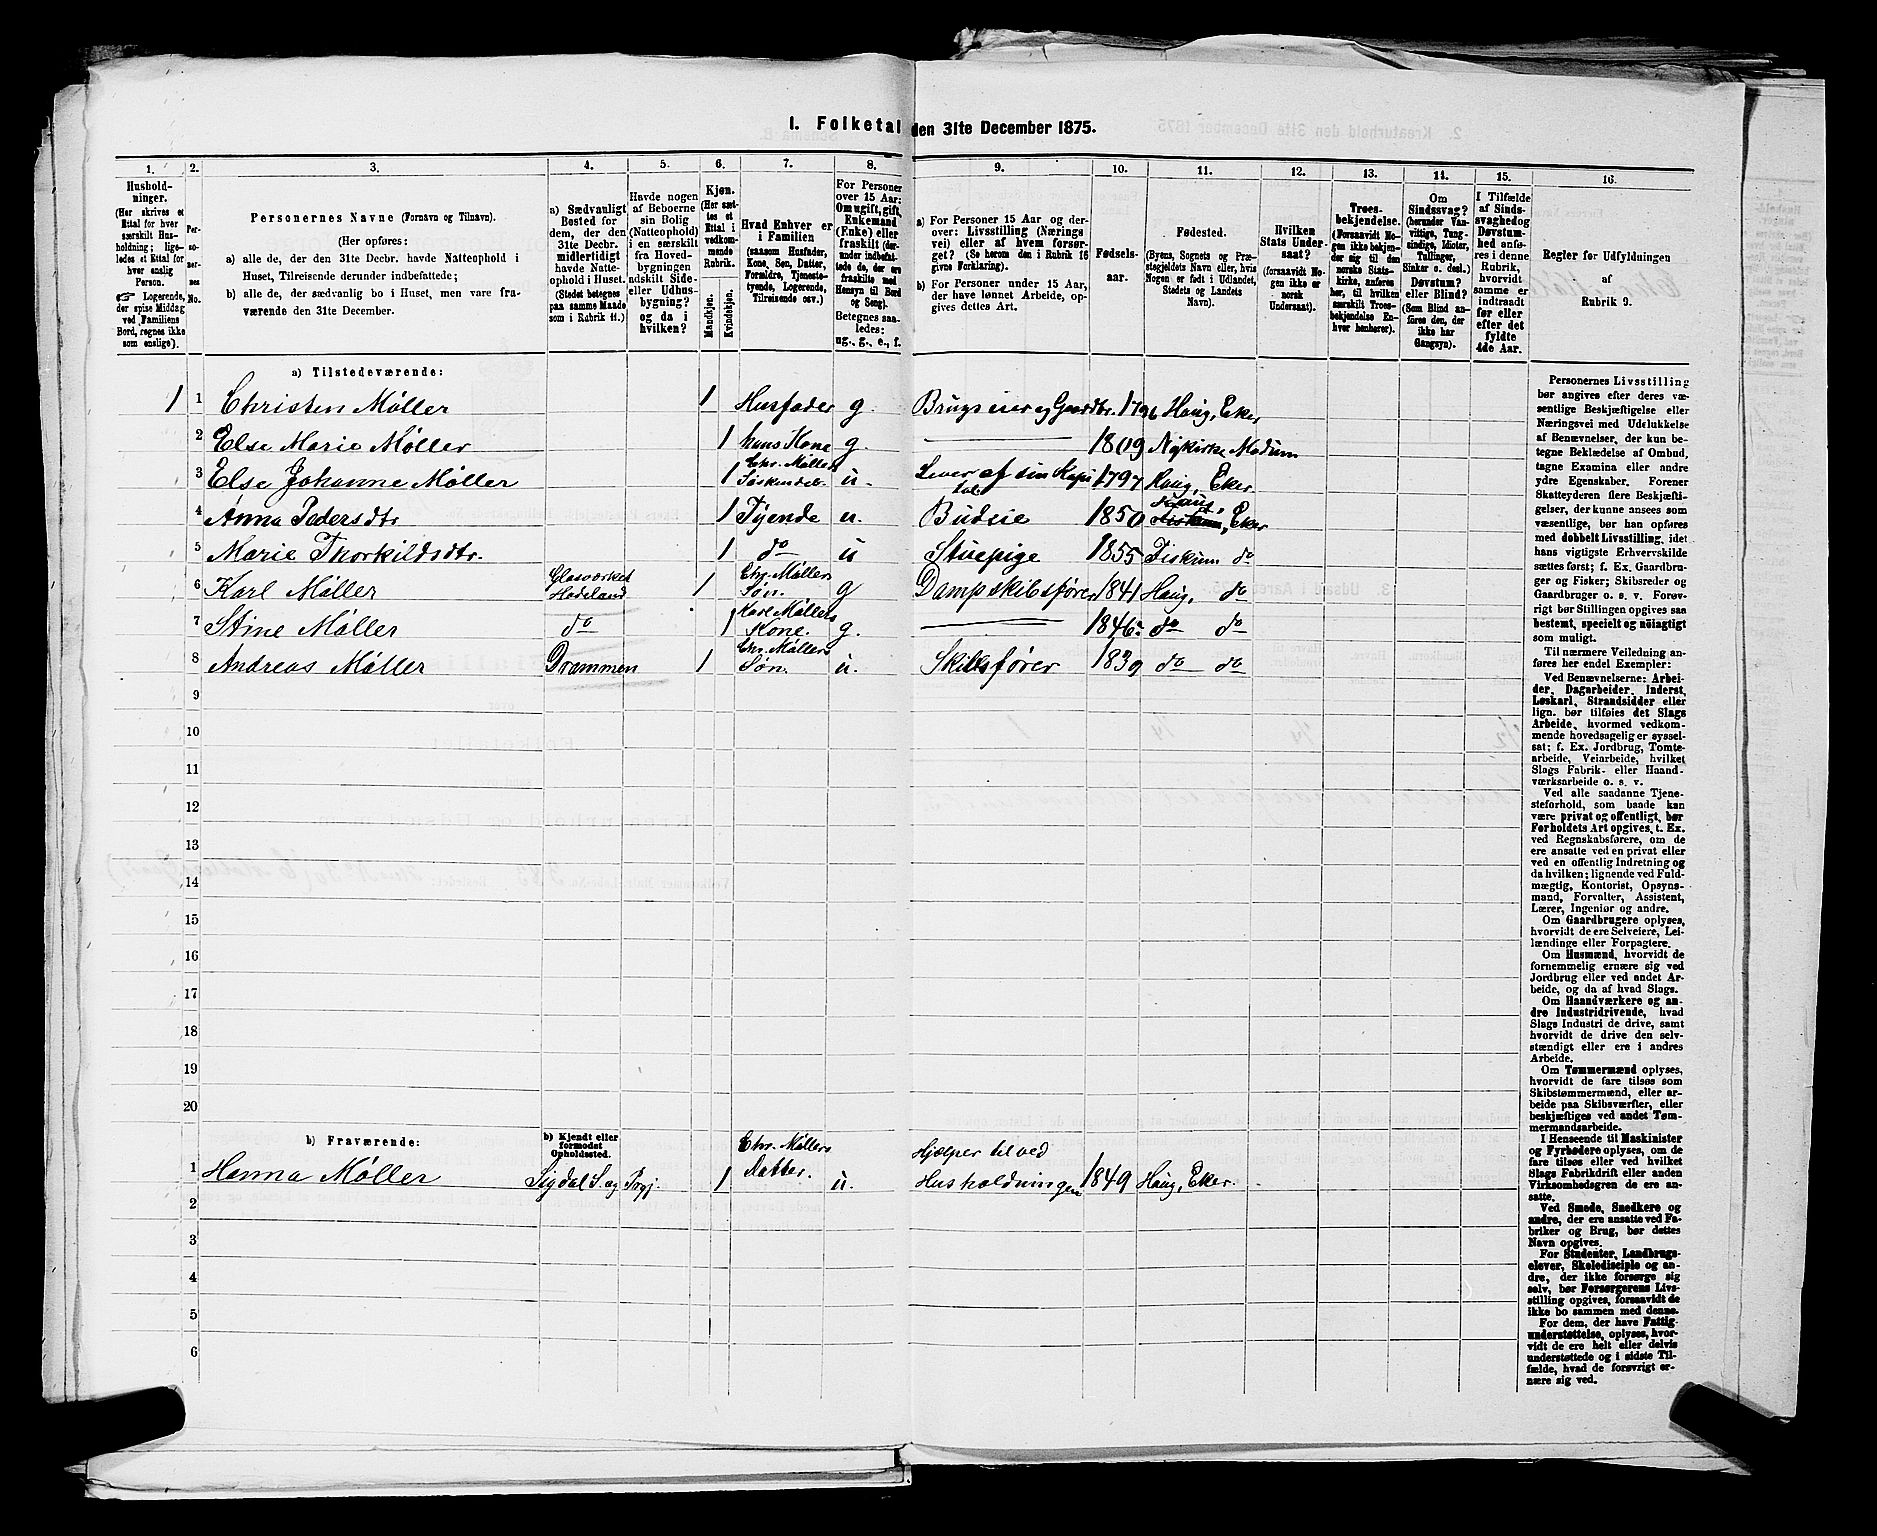 I. Folketal den 31te December 1875.
1. 2. 3. 4. 5. 6. 7. 8. 9. 10. 11. 12. 13. 14. 15. 16.
Hushold-
ninger.
(Her skrives et
Ettal for hver
særskilt Hus-
holdning; lige-
ledes et Ettal for
hver enslig
Person.
☞ Logerende,
der spise Middag
ved Familiens
Bord, regnes ikke
som enslige).
Per-
so-
ner-
nes
No.
Personernes Navne (Fornavn og Tilnavn).
(Her opføres:
a) alle de, der den 31te Decbr. havde Natteophold i
Huset, Tilreisende derunder indbefattede;
b) alle de, der sædvanlig bo i Huset, men vare fra-
værende den 31te December.
a) Sædvanligt
Bosted for
dem, der den
31te Decbr.
midlertidigt
havde Natte-
ophold i Huset.
(Stedet betegnes
paa samme Maade
som i Rubrik 11.)
Havde nogen
af Beboerne
sin Bolig
(Natteophold)
i en særskilt
fra Hoved-
bygningen
adskilt Side-
eller Udhus-
bygning?
og da i
hvilken?
Kjøn.
(Her sæt-
tes et
Ettal i
vedkom-
mende
Rubrik.
Mandkjøn.
Kvindekjøn.
Hvad Enhver er
i Familien
(saasom Husfader,
Kone, Søn, Datter,
Forældre, Tjeneste-
tyende, Logerende,
Tilreisende osv.)
For Personer
over 15 Aar:
Om ugift, gift,
Enkemand
(Enke) eller
fraskilt (der-
under indbefat-
tede de, der ere
fraskilte med
Hensyn til Bord
og Seng).
Betegnes saa-
ledes:
ug., g., e., f.
a) For Personer 15 Aar og der-
over: Livsstilling (Nærings
vei) eller af hvem forsør-
get? (Se herom den i Rubrik 16
givne Forklaring).
b) For Personer under 15 Aar,
der have lønnet Arbeide, op-
gives dettes Art.
Fødsels-
aar.
Fødested.
(Byens, Sognets og Præ-
stegjeldets Navn eller, hvis
Nogen er født i Udlandet,
Stedets og Landets
Navn).
Hvilken
Stats Under-
saat?
(forsaavidt No-
gen ikke er
norsk
Undersaat).
Troes-
bekjendelse.
(Forsaavidt No-
gen ikke bekjen-
der sig til den
norske Stats-
kirke, anføres
her, til hvilken
særskilt Troes-
bekjendelse En-
hver henhører).
Om
Sindssvag?
(herunder Van-
vittige, Tung-
sindige, Idioter,
Tullinger,
Sinker o. desl.)
Døvstum?
eller Blind?
(Som Blind an-
føres den, der
ikke har
Gangsyn).
I Tilfælde
af Sinds-
svaghed og
Døvstum-
hed anfø-
res i denne
Rubrik,
hvorvidt
samme er
indtraadt
før eller
efter det
fyldte
4de Aar.
Regler for Udfyldningen
af
Rubrik 9.
a) Tilstedeværende:
1 1 Christen Møller 1 Husfader g. Brugseier og Gaardbr. 1796 Haug, Eker
2 Else Marie Møller 1 hans Kone g. 1809 Nykirke Modum
3 Else Johanne Møller 1 Chr. Møllers Søskendeb. u. Lever af sin Kapital 1797 Haug, Eker
4 Anna Pedersdtr 1 Tyende u. Budeie 1850 Haug, Eker
5 Marie Thorkildsdtr. 1 do u Stuepige 1855 Fiskum do
6 Karl Møller Glasværket Hadeland 1 Chr. Møllers Søn. g Dampskibsfører 1841 Haug, do
7 Stine Møller do 1 Karl Møllers Kone. g. 1846 do do
8 Andreas Møller Drammen 1 Chr. Møllers Søn. u. Skibsfører 1839 do do
9
10
11
12
13
14
15
16
17
18
19
20
b) Fraværende:
b) Kjendt eller
formodet
Opholdssted.
1 Hanna Møller Sigdal S. og Prgj. 1 Chr. Møllers Datter. u. Hjælper til ved Husholdningen 1849 Haug, Eker.
2
3
4
5
6
Personernes Livsstilling
bør angives efter deres væ-
sentlige Beskjæftigelse eller
Næringsvei med Udelukkelse
af Benævnelser, der kun be-
tegne Beklædelse af Ombud,
tagne Examina eller andre
ydre Egenskaber. Forener
Skatteyderen flere Beskjæfti-
gelser, der kunne ansees som
væsentlige, bør han opføres
med dobbelt Livsstilling, idet
hans vigtigste Erhvervskilde
sættes først; f. Ex. Gaardbru-
ger og Fisker; Skibsreder og
Gaardbruger o. s. v. Forøv-
rigt bør Stillingen opgives saa
bestemt, specielt og nöiagtigt
som muligt.
Til nærmere Veiledning an-
føres her endel Exempler:
Ved Benævnelserne: Arbei-
der, Dagarbeider, Inderst,
Løskarl, Strandsidder eller
lign. bør tilføies det Slags
Arbeide, hvormed vedkom-
mende hovedsagelig er syssel-
sat; f. Ex. Jordbrug, Tomte-
arbeide, Veiarbeide, hvilket
Slags Fabrik- eller Haand-
værksarbeide o. s. v.
Ved alle saadanne Tjene-
steforhold, som baade kan
være privat og offentligt, bør
Forholdets Art opgives, t. Ex.
ved Regnskabsførere, om de
ere ansatte ved en privat eller
ved en offentlig Indretning og
da hvilken; lignende ved Fuld-
mægtig, Kontorist, Opsyns-
mand, Forvalter, Assistent,
Lærer, Ingeniør og andre.
Om Gaardbrugere oplyses,
hvorvidt de ere Selveiere, Lei-
lændinge eller Forpagtere.
Om Husmænd, hvorvidt de
fornemmelig ernære sig ved
Jordbrug eller ved andet Ar-
beide, og da af hvad Slags.
Om Haandværkere og an-
dre Industridrivende, hvad
Slags Industri de drive, samt
hvorvidt de drive den selv-
stændigt eller ere i andres
Arbeide.
Om Tømmermænd oplyses,
hvorvidt de fare tilsøs som
Skibstømmermænd, eller ar-
beide paa Skibsværfter, eller
beskjæftiges ved andet Tøm-
mermandsarbeide.
I Henseende til Maskinister
og Fyrbødere oplyses, om de
fare tilsøs eller ved hvilket
Slags Fabrikdrift eller anden
Virksomhedsgren de ere an-
satte.
Ved Smede, Snedkere og
andre, der ere ansatte ved Fa-
briker og Brug, bør dettes
Navn opgives.
For Studenter, Landbrugs-
elever, Skoledisciple og an-
dre, der ikke forsørge sig
selv, bør Forsørgerens Livs-
stilling opgives, forsaavidt de
ikke bo sammen med denne.
For dem, der have Fattig-
understøttelse, oplyses, hvor-
vidt de ere helt eller delvis
understøttede og i sidste Til-
fælde, hvad de forøvrigt er-
nære sig ved.